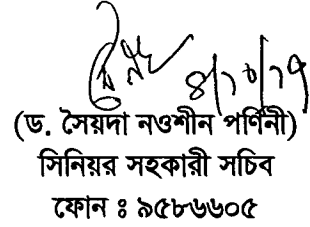 ৪/১০/১৭
(ড. সৈয়দা নওশীন পর্ণিনী)
সিনিয়র সহকারী সচিব
ফোন ঃ ৯৫৮৬৬০৫